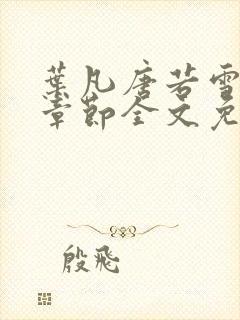 葉凡唐若雪
章節全文免
殷飛